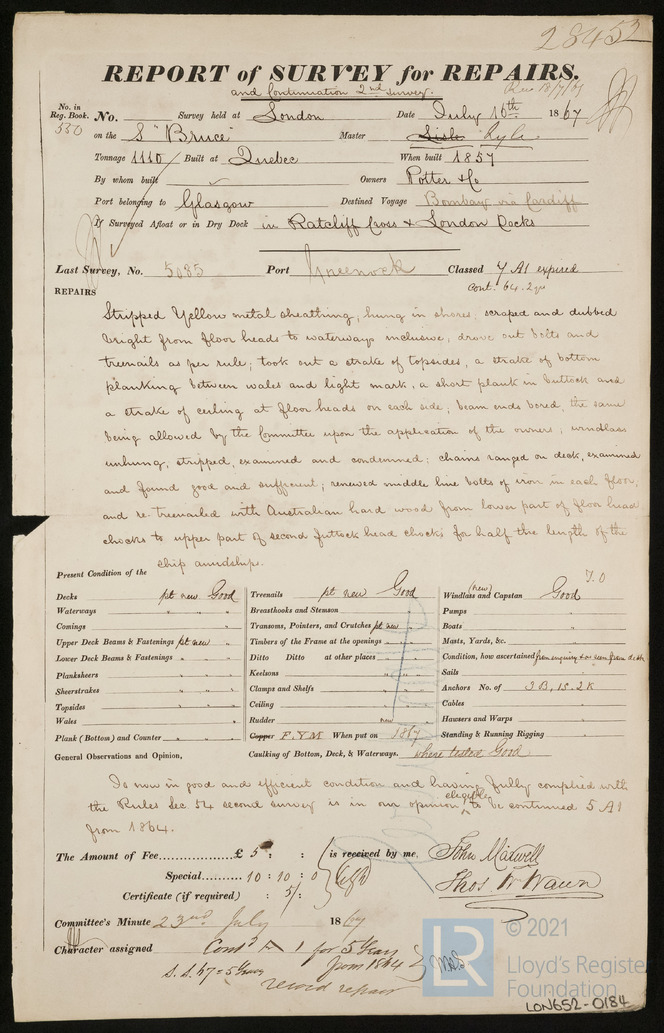 28452
REPORT of SURVEY for REPAIRS.
and Continuation 2nd survey. Rec 18/7/67
No. in Reg. Book. No. Survey held at London Date July 16th 1867
550 on the S "Bruce" Master Lisle Kyle
Tonnage 1110 Built at Quebec When built 1857
By whom built Owners Potter & Co
Port belonging to Glasgow Destined Voyage Bombay via Cardiff
If Surveyed Afloat or in Dry Dock in Ratcliff Cross & London Docks
Last Survey, No. 5085 Port Greenock Classed 7 A1 expired
Cont. 64. 2 yrs
REPAIRS
Stripped Yellow metal sheathing; hung in shores; scraped and dubbed
bright from floor heads to waterways inclusive; drove out bolts and
treenails as per rule; took out a strake of topsides, a strake of bottom
planking between wales and light mark, a short plank in buttock and
a strake of ceiling at floor heads on each side; beam ends bored, the same
being allowed by the Committee upon the application of the owners; windlass
unhung, stripped, examined and condemned; chains ranged on deck, examined
and found good and sufficient; renewed middle line bolts of iron in each floor;
and re-treenailed with Australian hard wood from lower part of floor head
chocks to upper part of second futtock head chocks for half the length of the
ship amidships.
Present Condition of the
Decks pt new Good Treenails pt new Good Windlass (new) and Capstan Good
Waterways " " " Breasthooks and Stemson Pumps "
Comings " " " Transoms, Pointers, and Crutches pt new " Boats "
Upper Deck Beams & Fastenings pt new " Timbers of the Frame at the openings " " " Masts, Yards, &c. "
Lower Deck Beams & Fastenings " " " Ditto Ditto at other places " " " Condition, how ascertained from enquiry & as seen from deck
Planksheers " " " Keelsons " " " Sails "
Sheerstrakes " " " Clamps and Shelfs " " " Anchors No. of 3B, 1S. 2K
Topsides " " " Ceiling " " " Cables "
Wales " Rudder new " Hawsers and Warps "
Plank (Bottom) and Counter " " " Copper F.Y.M When put on 1867 Standing & Running Rigging "
General Observations and Opinion, Caulking of Bottom, Deck, & Waterways. where tested Good
Is now in good and efficient condition and having fully complied with
the Rules Sec. 54 second survey is in our opinion eligible to be continued 5 A1
from 1864.
The Amount of Fee £ 5 : : is received by me, John Maxwell
Special 10 : 10 : 0 Thos W Wawn
Certificate (if required) : 5/ :
Committee's Minute 23rd July 1867
Character assigned Contd A 1 for 5 Years
from 1864
S.S. 67 = 5 Years
record repair
© 2021
LR
Lloyd's Register
Foundation
LON652-0184